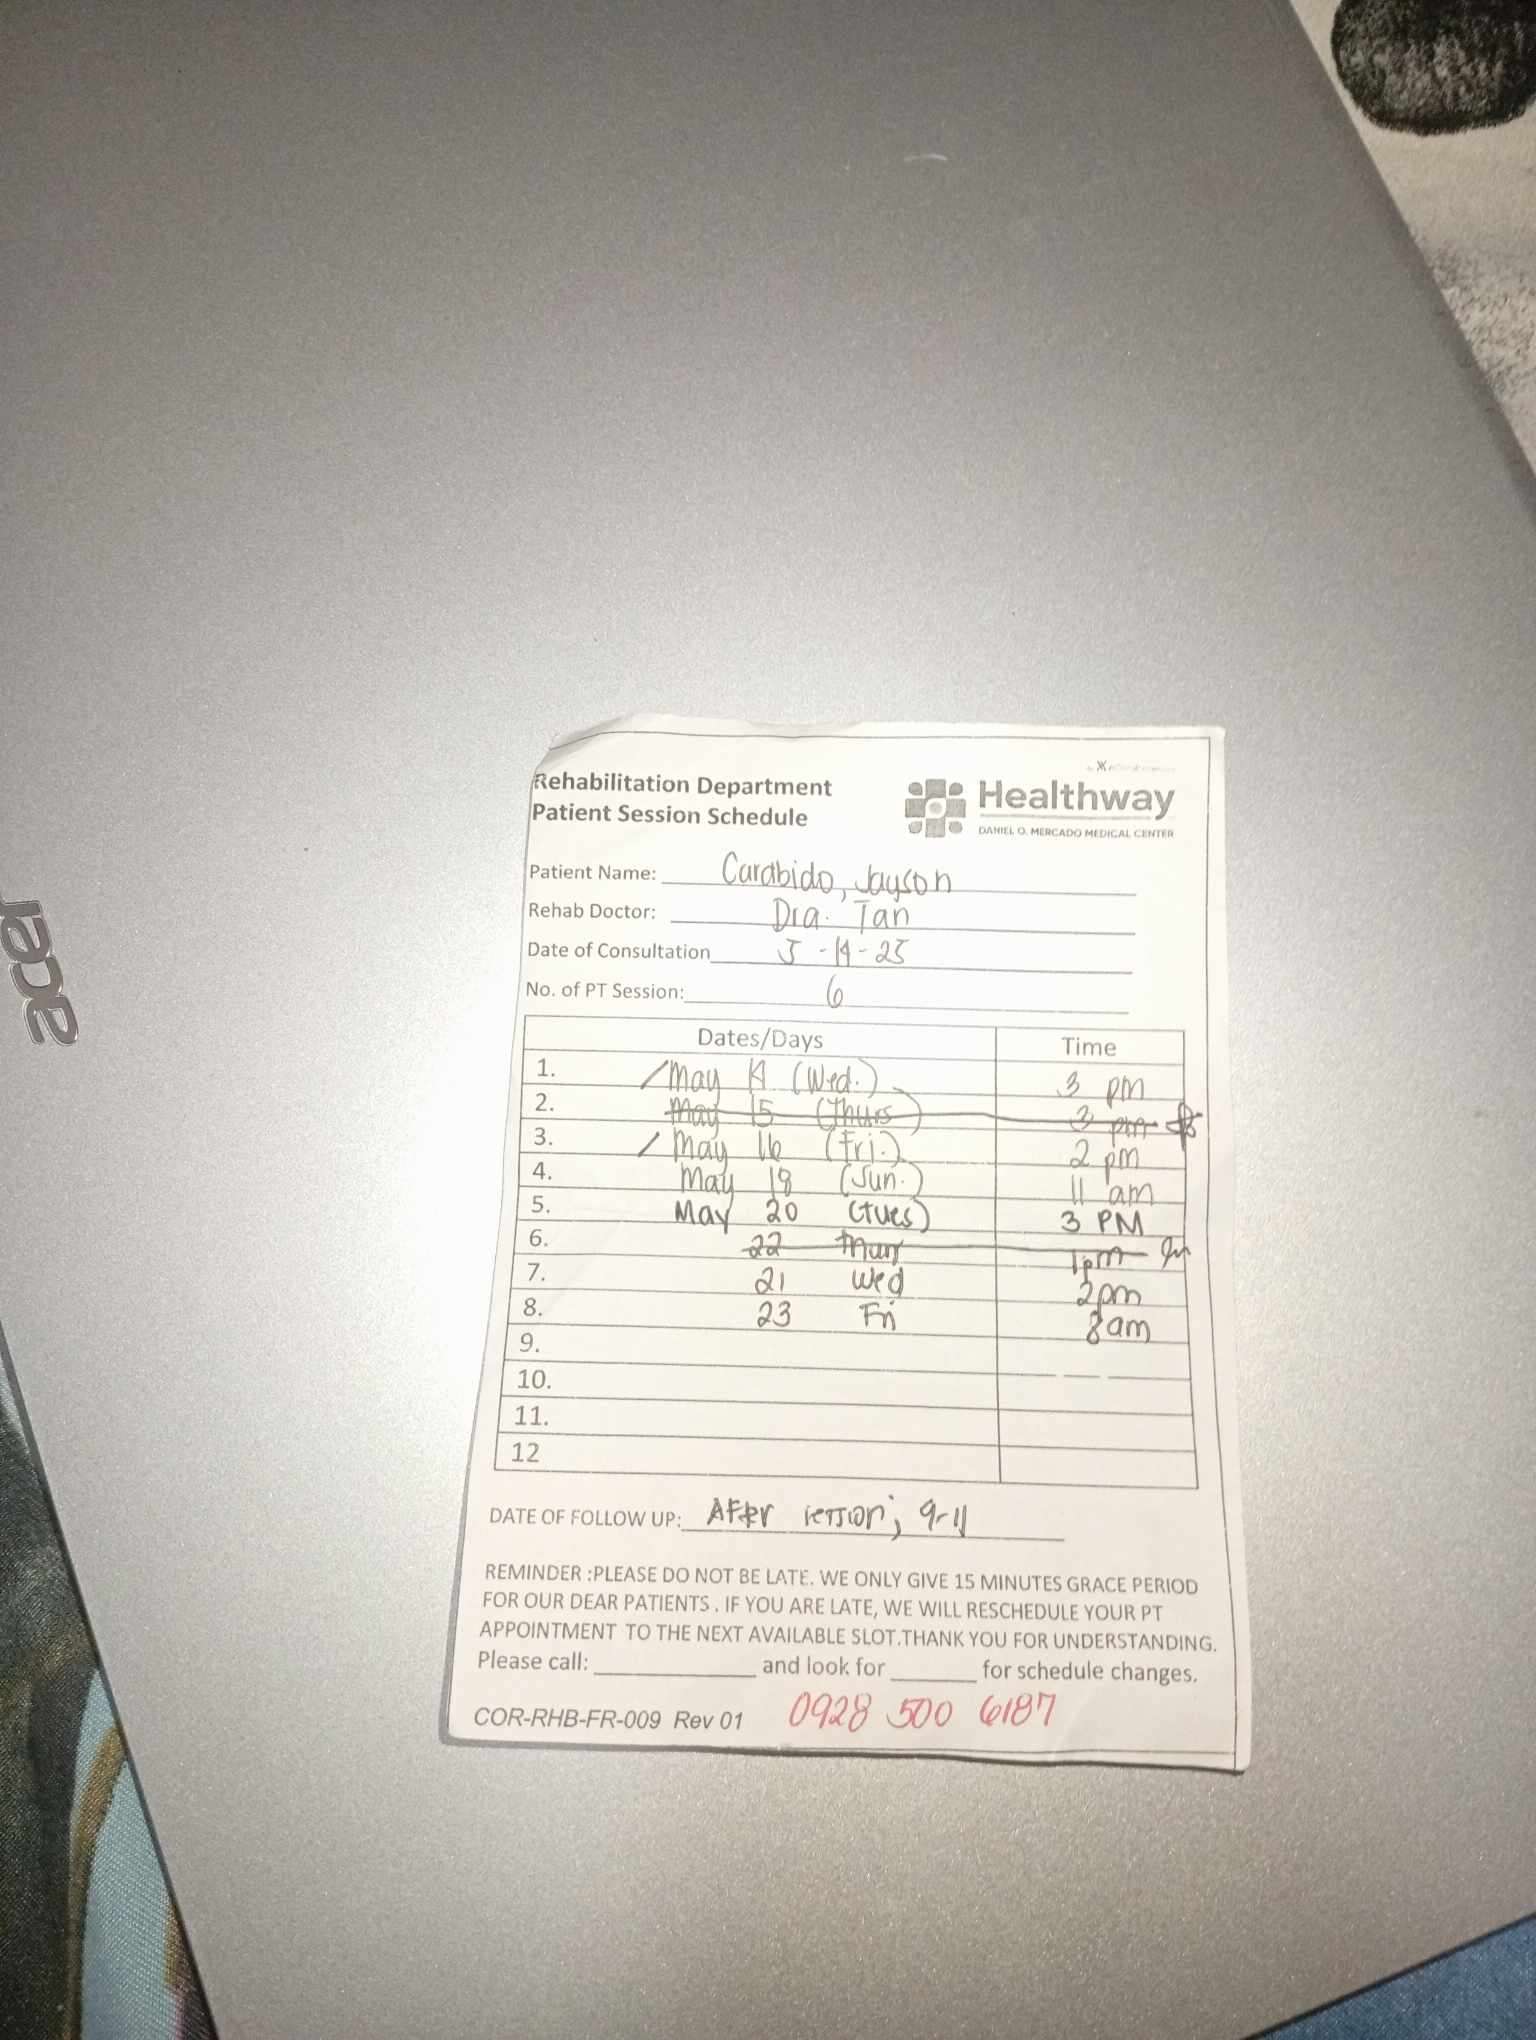 acer
Rehabilitation Department
Patient Session Schedule
Healthway
DANIEL O. MERCADO MEDICAL CENTER
Patient Name: Carabido, Jayson
Rehab Doctor: Dra. Tan
Date of Consultation 5-14-25
No. of PT Session: 6
Dates/Days Time
1. /May 14 (Wed.) 3 pm
2. May 15 (Thurs) 3 pm
3. / May 16 (Fri.) 2 pm
4. May 18 (Sun.) 11 am
5. May 20 (Tues) 3 PM
6. 22 Thur 1pm
7. 21 Wed 2pm
8. 23 Fri 8am
9.
10.
11.
12
DATE OF FOLLOW UP: After session; 9-11
REMINDER :PLEASE DO NOT BE LATE. WE ONLY GIVE 15 MINUTES GRACE PERIOD
FOR OUR DEAR PATIENTS . IF YOU ARE LATE, WE WILL RESCHEDULE YOUR PT
APPOINTMENT TO THE NEXT AVAILABLE SLOT.THANK YOU FOR UNDERSTANDING.
Please call: ____________ and look for ______ for schedule changes.
COR-RHB-FR-009 Rev 01 0928 500 6187